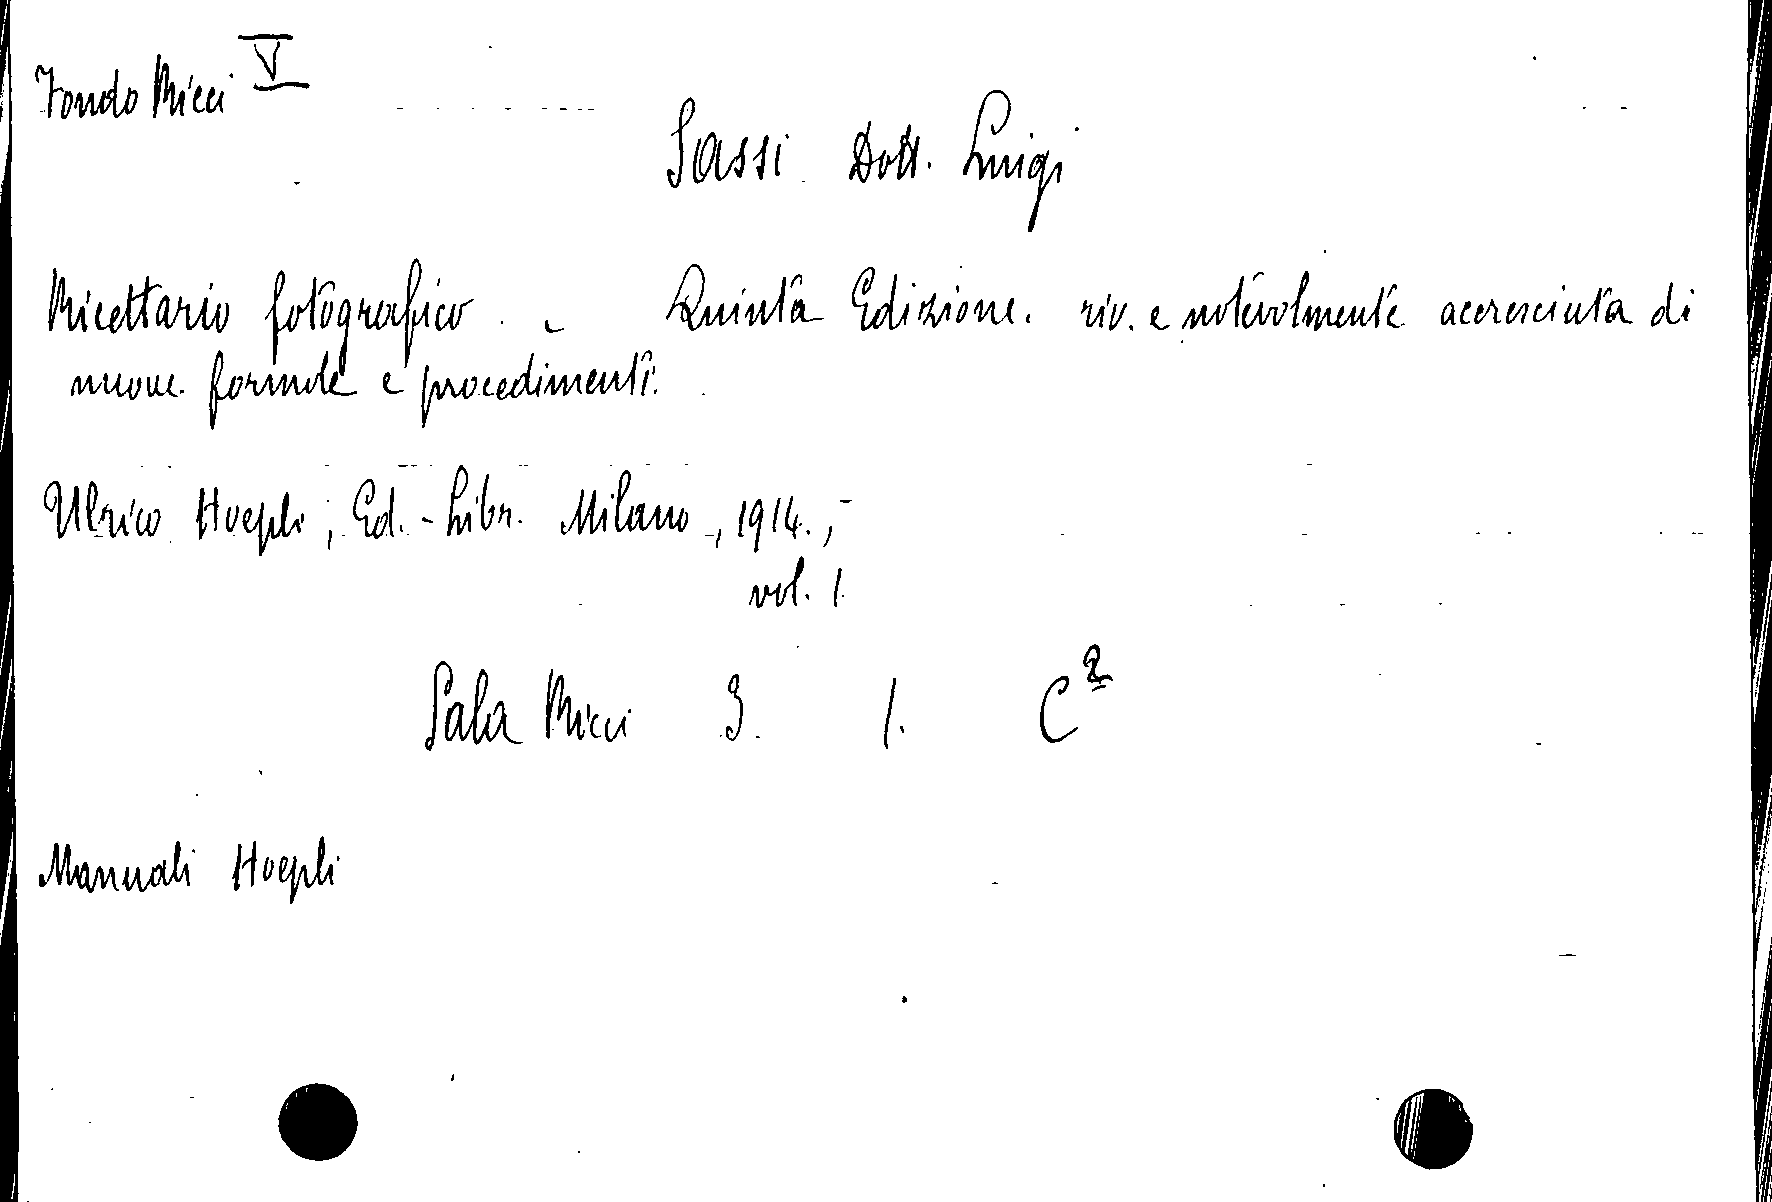 Fondo Ricci V
Sassi Dott. Luigi
Ricettario fotografico. - Quinta Edizione. riv. e notevolmente accresciuta di
nuove formole e procedimenti.
Ulrico Hoepli, Ed.-Libr. Milano, 1914.,-
vol. 1
Sala Ricci 3. 1. C²
Manuali Hoepli